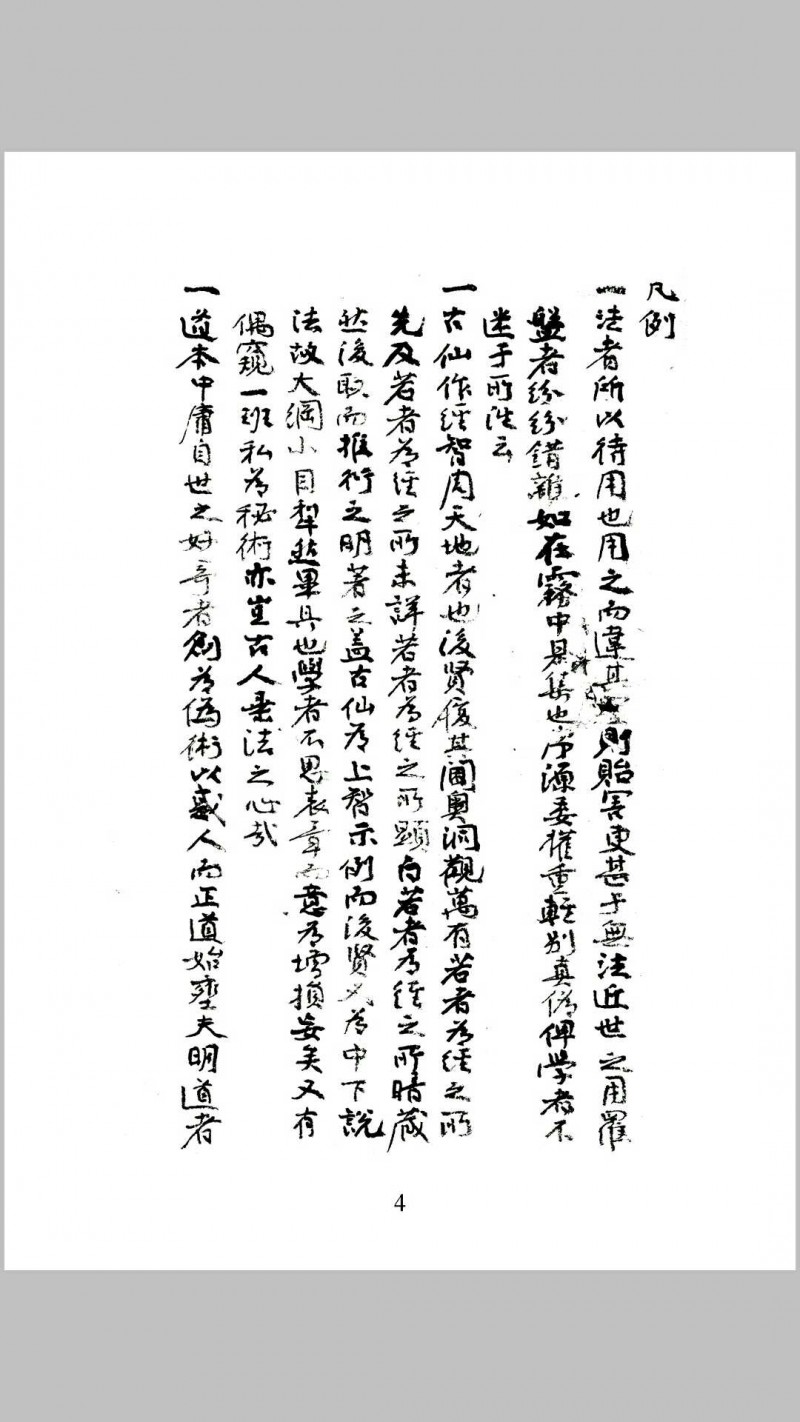 凡例
一法者所以待用也用之而違其則貽害更甚于無法近世之用羅
盤者紛紛錯雜如在霧中是集也序源委權重輕別真偽俾學者不
迷于所從云
一古仙作經智周天地者也後賢復其閫奧洞觀萬有若者為經之所
先及若者為經之所未詳若者為經之所顯白若者為經之所暗藏
然後取而推衍之明著之蓋古仙為上智示例而後賢又為中下說
法故大綱小目犁然畢具也學者不思表章而意為增損妄矣又有
偶窺一班私為秘術亦豈古人垂法之心哉
一道本中庸自世之好奇者創為偽術以惑人而正道始壅夫明道者
4